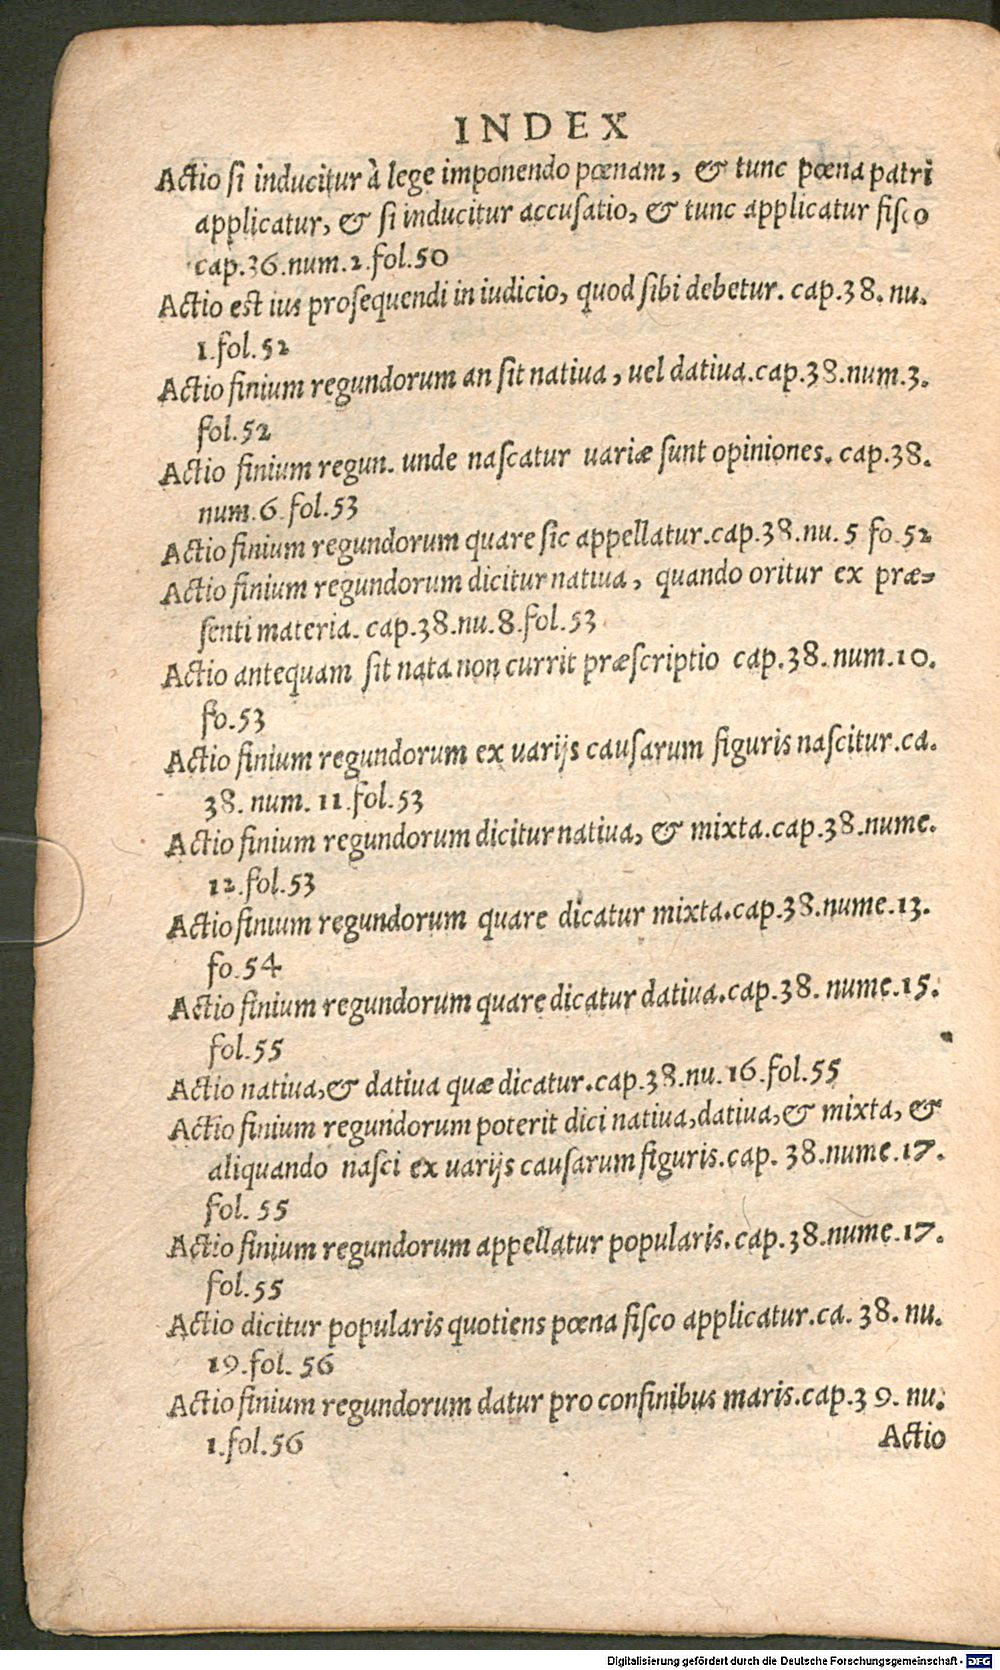 INDEX
Actio si inducitur à lege imponendo pœnam, & tunc pœna patri
applicatur, & si inducitur accusatio, & tunc applicatur fisco
cap.36.num.2.fol.50
Actio est ius prosequendi in iudicio, quod sibi debetur. cap.38. nu.
1.fol.52
Actio finium regundorum an sit natiua, uel datiua.cap.38.num.3.
fol.52
Actio finium regun. unde nascatur uariæ sunt opiniones. cap.38.
num.6.fol.53
Actio finium regundorum quare sic appellatur.cap.38.nu.5 fo.52
Actio finium regundorum dicitur natiua, quando oritur ex præ=
senti materia. cap.38.nu.8.fol.53
Actio antequam sit nata non currit præscriptio cap.38.num.10.
fo.53
Actio finium regundorum ex uarijs causarum figuris nascitur.ca.
38. num. 11.fol.53
Actio finium regundorum dicitur natiua, & mixta.cap.38.nume.
12.fol.53
Actio finium regundorum quare dicatur mixta.cap.38.nume.13.
fo.54
Actio finium regundorum quare dicatur datiua.cap.38. nume.15.
fol.55
Actio natiua,& datiua quæ dicatur.cap.38.nu.16.fol.55
Actio finium regundorum poterit dici natiua,datiua,& mixta, &
aliquando nasci ex uarijs causarum figuris.cap. 38.nume.17.
fol. 55
Actio finium regundorum appellatur popularis.cap.38.nume.17.
fol.55
Actio dicitur popularis quotiens pœna fisco applicatur.ca. 38. nu.
19.fol. 56
Actio finium regundorum datur pro confinibus maris.cap.39. nu.
1.fol.56
Actio
Digitalisierung gefördert durch die Deutsche Forschungsgemeinschaft - DFG